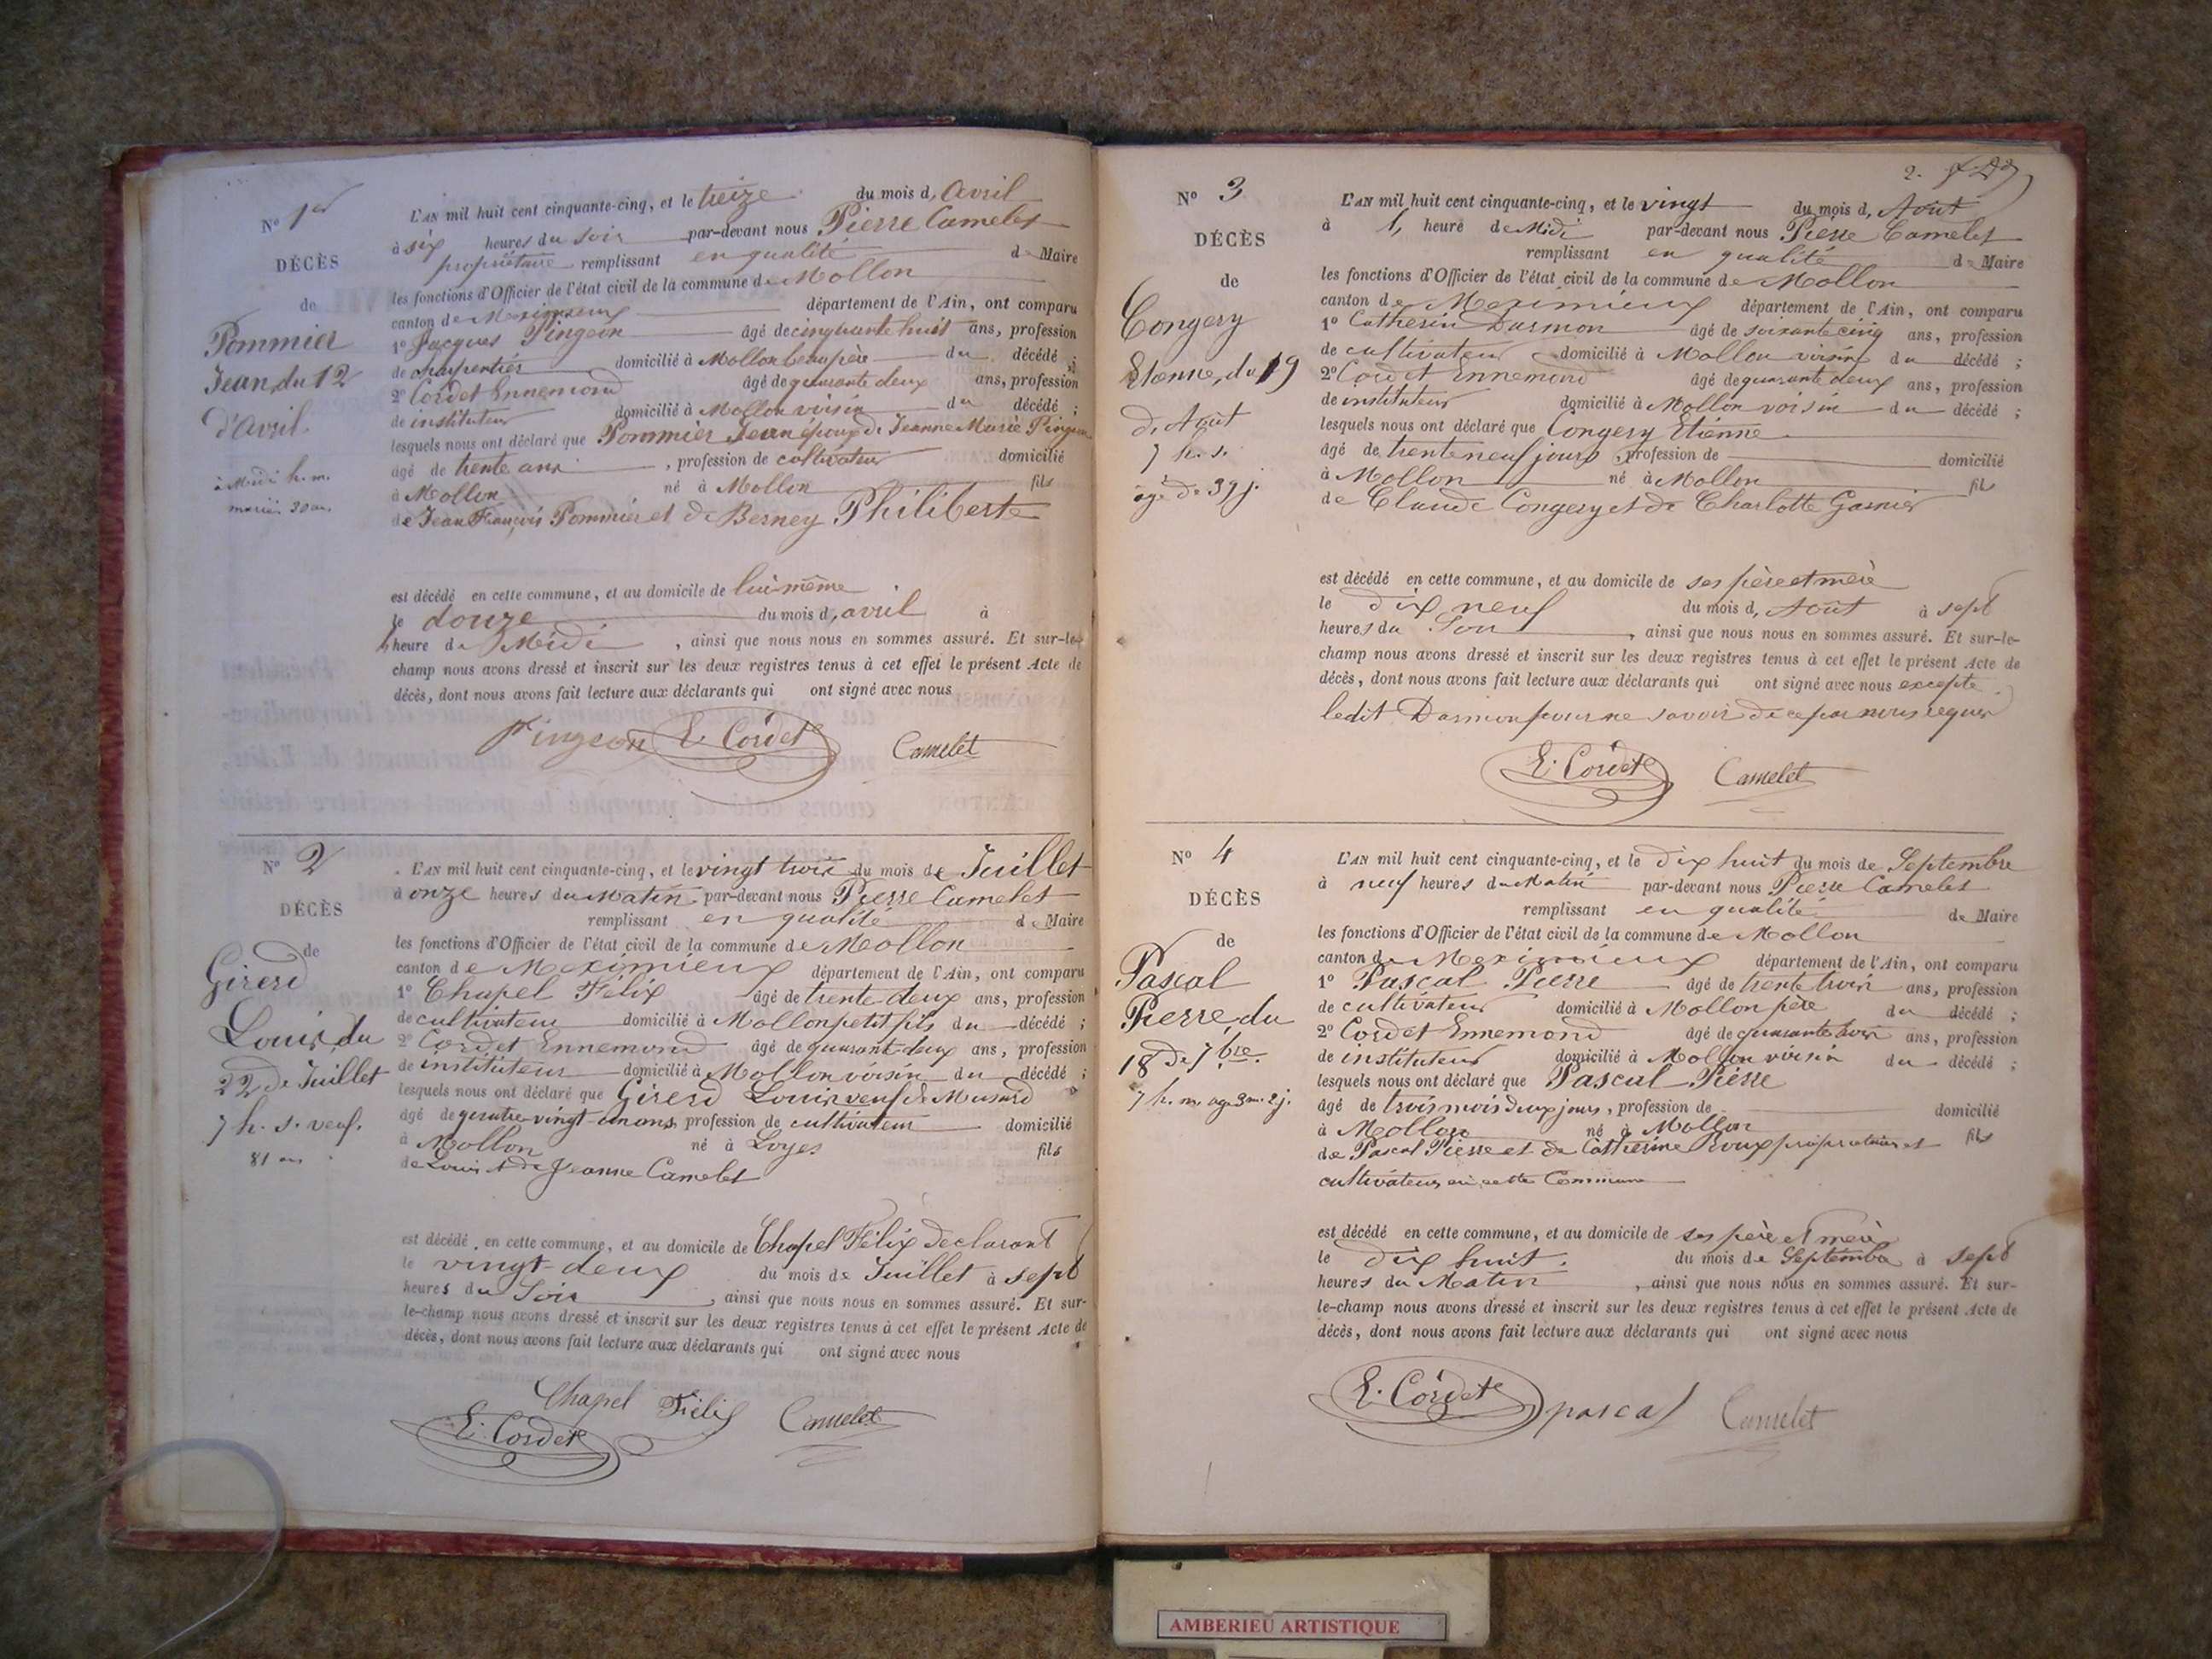 No 1er
DÉCÈS
de
Pommier
Jean, du 12
d'Avril
à Midi h. m.
mariés 30 ans
L'AN mil huit cent cinquante-cinq, et le treize du mois d'Avril
à six heures du soir par-devant nous Pierre Camelet
propriétaire remplissant en qualité de Maire
les fonctions d'Officier de l'état civil de la commune de Mollon
canton de Meximieux département de l'Ain, ont comparu
1o Jacques Pingeon âgé de cinquante huit ans, profession
de charpentiér domicilié à Mollon beaupère du décédé ;
2o Cordet Ennemond âgé de quarante deux ans, profession
de instituteur domicilié à Mollon voisin du décédé ;
lesquels nous ont déclaré que Pommier Jean époux de Jeanne Marie Pingeon
âgé de trente ans , profession de cultivateur domicilié
à Mollon né à Mollon fils
de Jean François Pommier et de Berney Philiberte
est décédé en cette commune, et au domicile de lui-même
le douze du mois d'avril à
heure de Midi , ainsi que nous nous en sommes assuré. Et sur-le-
champ nous avons dressé et inscrit sur les deux registres tenus à cet effet le présent Acte de
décès, dont nous avons fait lecture aux déclarants qui ont signé avec nous
Pingeon E. Cordet Camelet
No 2
DÉCÈS
de
Girerd
Louis, du
22 de Juillet
7 h. s. veuf.
81 ans
L'AN mil huit cent cinquante-cinq, et le vingt trois du mois de Juillet
à onze heures du Matin par-devant nous Pierre Camelet
remplissant en qualité de Maire
les fonctions d'Officier de l'état civil de la commune de Mollon
canton de Meximieux département de l'Ain, ont comparu
1o Chapel Félix âgé de trente-deux ans, profession
de cultivateur domicilié à Mollon petit fils du décédé ;
2o Cordet Ennemond âgé de quarant-deux ans, profession
de instituteur domicilié à Mollon voisin du décédé ;
lesquels nous ont déclaré que Girerd Louis veuf de Musard
âgé de quatre-vingt-un ans, profession de cultivateur domicilié
à Mollon né à Loyes fils
de Louis et de Jeanne Camelet
est décédé en cette commune, et au domicile de Chapel Félix declarant
le vingt-deux du mois de Juillet à sept
heures du Soir , ainsi que nous nous en sommes assuré. Et sur-
le-champ nous avons dressé et inscrit sur les deux registres tenus à cet effet le présent Acte de
décès, dont nous avons fait lecture aux déclarants qui ont signé avec nous
Chapel Félix Camelet
E. Cordet
2.
No 3
DÉCÈS
de
Congery
Etienne, du 19
d'Août
7 h. s.
âgé de 39 j.
L'AN mil huit cent cinquante-cinq, et le vingt du mois d'Août
à 1, heure de Midi par-devant nous Pierre Camelet
remplissant en qualité de Maire
les fonctions d'Officier de l'état civil de la commune de Mollon
canton de Meximieux département de l'Ain, ont comparu
1o Catherin Darmon âgé de soixante cinq ans, profession
de cultivateur domicilié à Mollon voisin du décédé ;
2o Cordet Ennemond âgé de quarante deux ans, profession
de instituteur domicilié à Mollon voisin du décédé ;
lesquels nous ont déclaré que Congery Etienne
âgé de trente neuf jours, profession de domicilié
à Mollon né à Mollon fils
de Claude Congery et de Charlotte Garnier
est décédé en cette commune, et au domicile de ses père et mère
le dix neuf du mois d'Août à sept
heures du Soir , ainsi que nous nous en sommes assuré. Et sur-le-
champ nous avons dressé et inscrit sur les deux registres tenus à cet effet le présent Acte de
décès, dont nous avons fait lecture aux déclarants qui ont signé avec nous excepté
ledit Darmon pour ne savoir de ce par nous requis
E. Cordet Camelet
No 4
DÉCÈS
de
Pascal
Pierre du
18 de 7bre.
7 h. m. agé 3 m. 2 j.
L'AN mil huit cent cinquante-cinq, et le dix huit du mois de Septembre
à neuf heures du Matin par-devant nous Pierre Camelet
remplissant en qualité de Maire
les fonctions d'Officier de l'état civil de la commune de Mollon
canton de Meximieux département de l'Ain, ont comparu
1o Pascal Pierre âgé de trente trois ans, profession
de cultivateur domicilié à Mollon père du décédé ;
2o Cordet Ennemond âgé de quarante trois ans, profession
de instituteur domicilié à Mollon voisin du décédé ;
lesquels nous ont déclaré que Pascal Pierre
âgé de trois mois deux jours, profession de domicilié
à Mollon né à Mollon fils
de Pascal Pierre et de Catherine Roux propriétaires et
cultivateurs en cette Commune
est décédé en cette commune, et au domicile de ses père et mère
le dix huit. du mois de Septembre à sept
heures du Matin , ainsi que nous nous en sommes assuré. Et sur-
le-champ nous avons dressé et inscrit sur les deux registres tenus à cet effet le présent Acte de
décès, dont nous avons fait lecture aux déclarants qui ont signé avec nous
E. Cordet pascal Camelet
AMBERIEU ARTISTIQUE